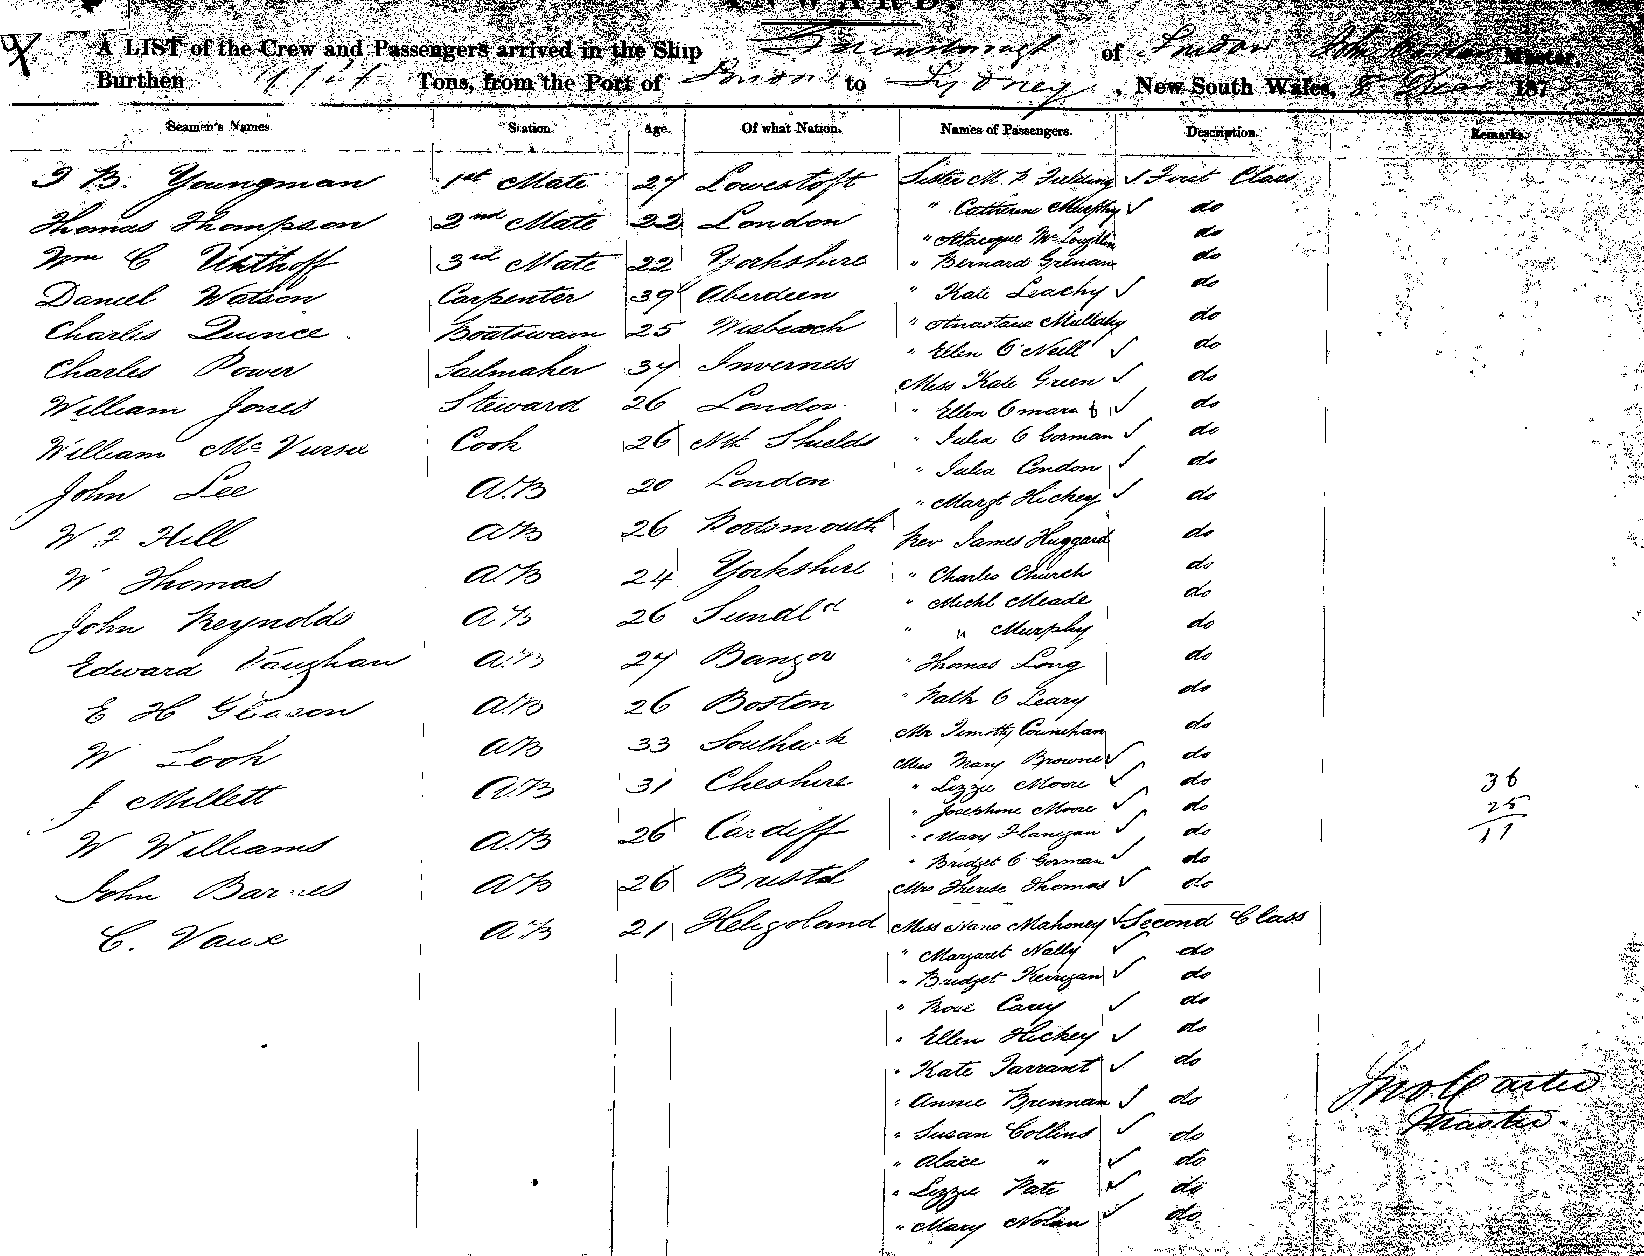 A LIST of the Crew and Passengers arrived in the Ship of London Master,
Burthen Tons, from the Port of London to Sydney, New South Wales, 8 187
Seamen's Names. Station. Age. Of what Nation. Names of Passengers. Description. Remarks.
B. Youngman 1st Mate 27 Lowestoft
Thomas Thompson 2nd Mate 22 London
Wm C Uhthoff 3rd Mate 22 Yorkshire
Daniel Watson Carpenter 39 Aberdeen
Charles Quince Boatswain 25 Wisbeach
Charles Power Sailmaker 34 Inverness
William Jones Steward 26 London
William Mc Cook 26 Nth Shields
John Lee A.B 20 London
W F Hill AB 26 Portsmouth
W Thomas A.B 24 Yorkshire
John Reynolds A B 26 Sundld
Edward Vaughan A.B 27 Bangor
E H Gleason A.B 26 Boston
W Look AB 33 Southwk
J Millett A.B 31 Cheshire
W Williams A.B 26 Cardiff
John Barnes A B 26 Bristol
C. Vause A.B 21 Heligoland
Sister M. Fielding ✓ First Class
" Catherine Murphy ✓ do
" Mc Loughlin do
" Bernard Grenan do
" Kate Leachy ✓ do
" Anastasia Mullahy do
" Ellen O'Neill ✓ do
Miss Kate Green ✓ do
" Ellen Omara ✓ do
" Julia O Gorman ✓ do
" Julia Condon ✓ do
" Margt Hickey ✓ do
Rev James Huggard do
" Charles Church do
" Michl Meade do
" " Murphy do
" Thomas Long do
" Patk O Leary do
Mr Timothy Counehan do
Miss Mary Browne ✓ do
" Lizzie Moore ✓ do
" Josephine Moore ✓ do
" Mary Flanigan ✓ do
" Bridget O Gorman ✓ do
Mrs Therese Thomas ✓ do
Miss Nano Mahoney ✓ Second Class
" Margaret Nally ✓ do
" Bridget Kerrigan ✓ do
" Rose Carey ✓ do
" Ellen Hickey ✓ do
" Kate Tarrant ✓ do
" Annie Brennan ✓ do
" Susan Collins ✓ do
" Alice " ✓ do
" Lizzie Pate ✓ do
" Mary Nolan ✓ do
36
25
11
Jno Carter
Master